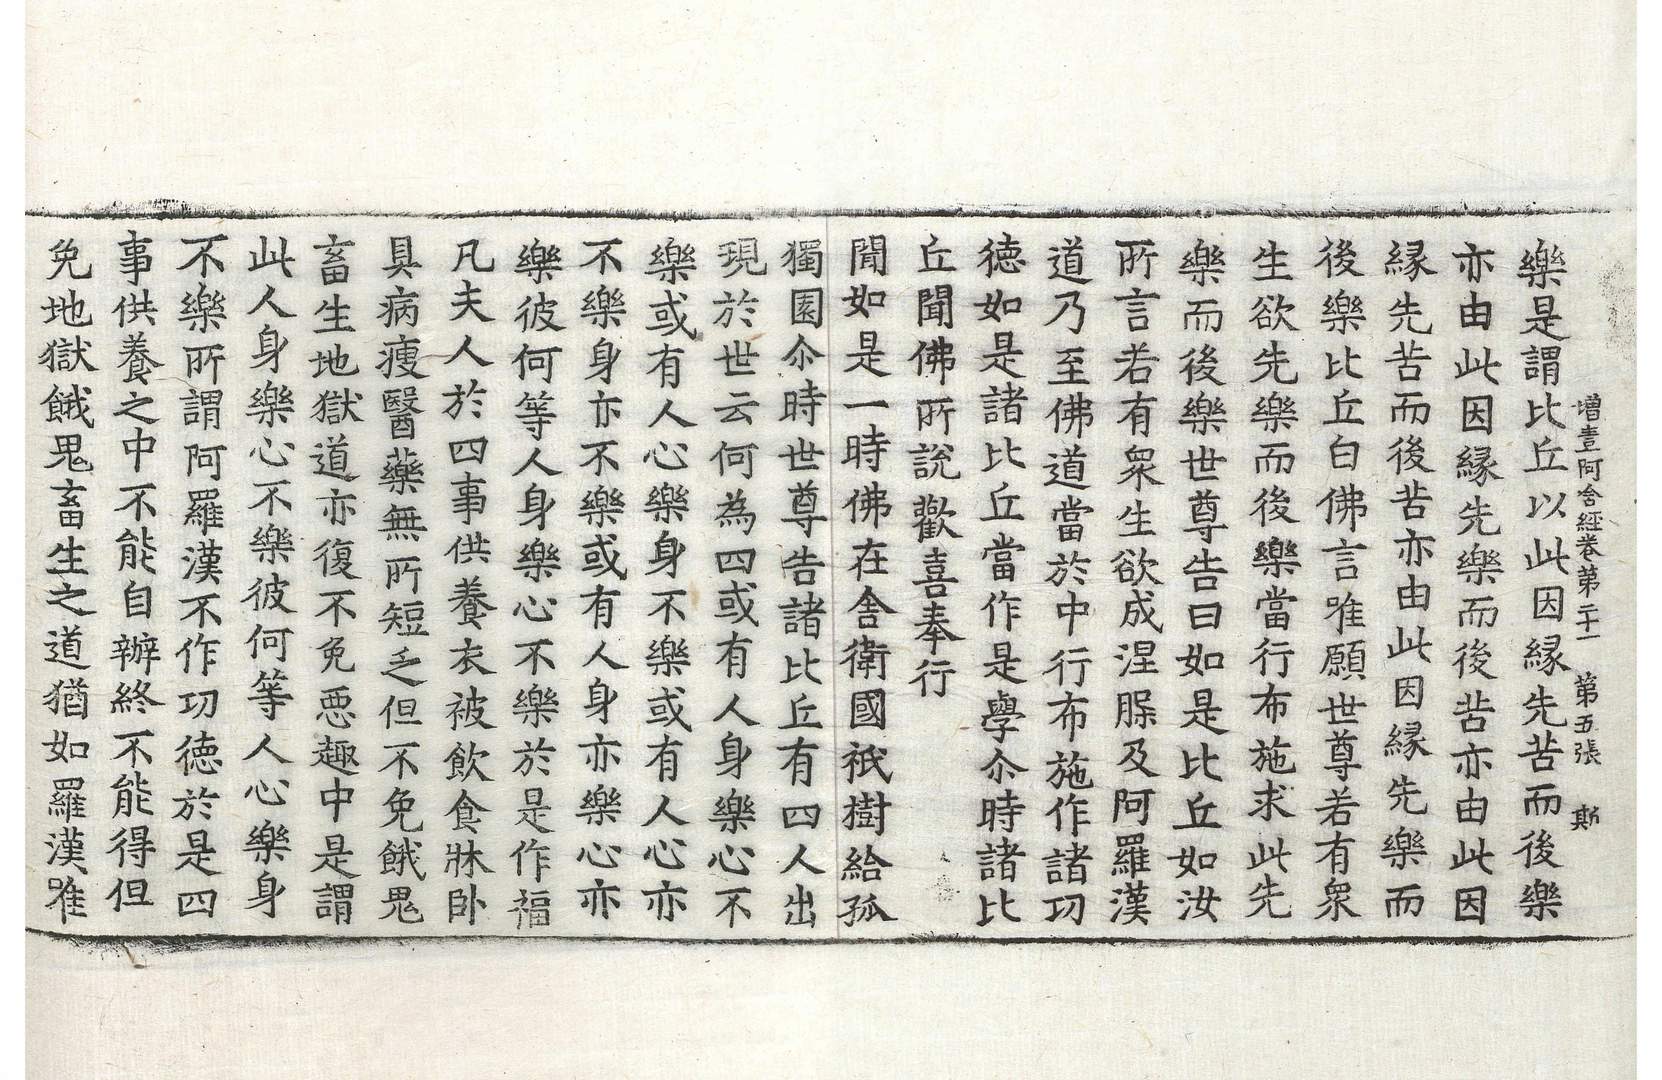 增壹阿含經卷第二十一 第五張 斯
樂是謂比丘以此因緣先苦而後樂
亦由此因緣先樂而後苦亦由此因
緣先苦而後苦亦由此因緣先樂而
後樂比丘白佛言唯願世尊若有衆
生欲先樂而後樂當行布施求此先
樂而後樂世尊告曰如是比丘如汝
所言若有衆生欲成涅脲及阿羅漢
道乃至佛道當於中行布施作諸功
德如是諸比丘當作是學尒時諸比
丘聞佛所說歡喜奉行
聞如是一時佛在舍衛國祇樹給孤
獨園尒時世尊告諸比丘有四人出
現於世云何為四或有人身樂心不
樂或有人心樂身不樂或有人心亦
不樂身亦不樂或有人身亦樂心亦
樂彼何等人身樂心不樂於是作福
凡夫人於四事供養衣被飲食牀卧
具病瘦醫藥無所短乏但不免餓鬼
畜生地獄道亦復不免惡趣中是謂
此人身樂心不樂彼何等人心樂身
不樂所謂阿羅漢不作功德於是四
事供養之中不能自辦終不能得但
免地獄餓鬼畜生之道猶如羅漢唯